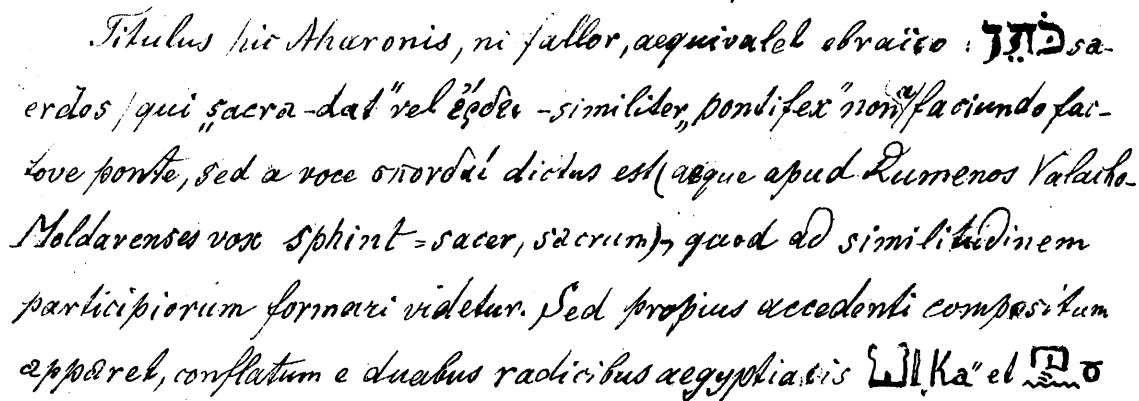 Titulus hic Aharonis, ni fallor, aequivalet ebraïco : כֹהֵן sa-
erdos (qui „sacra-dat" vel -similiter „pontifex" non a faciundo fac-
tove ponte, sed a voce σπονδαί dictus est (aeque apud Rumenos Valacho-
Moldavenses vox sphint = sacer, sacrum), quod ad similitudinem
participiorum formari videtur. Sed propius accedenti compositum
apparet, conflatum e duabus radicibus aegyptiacis „Ka" et